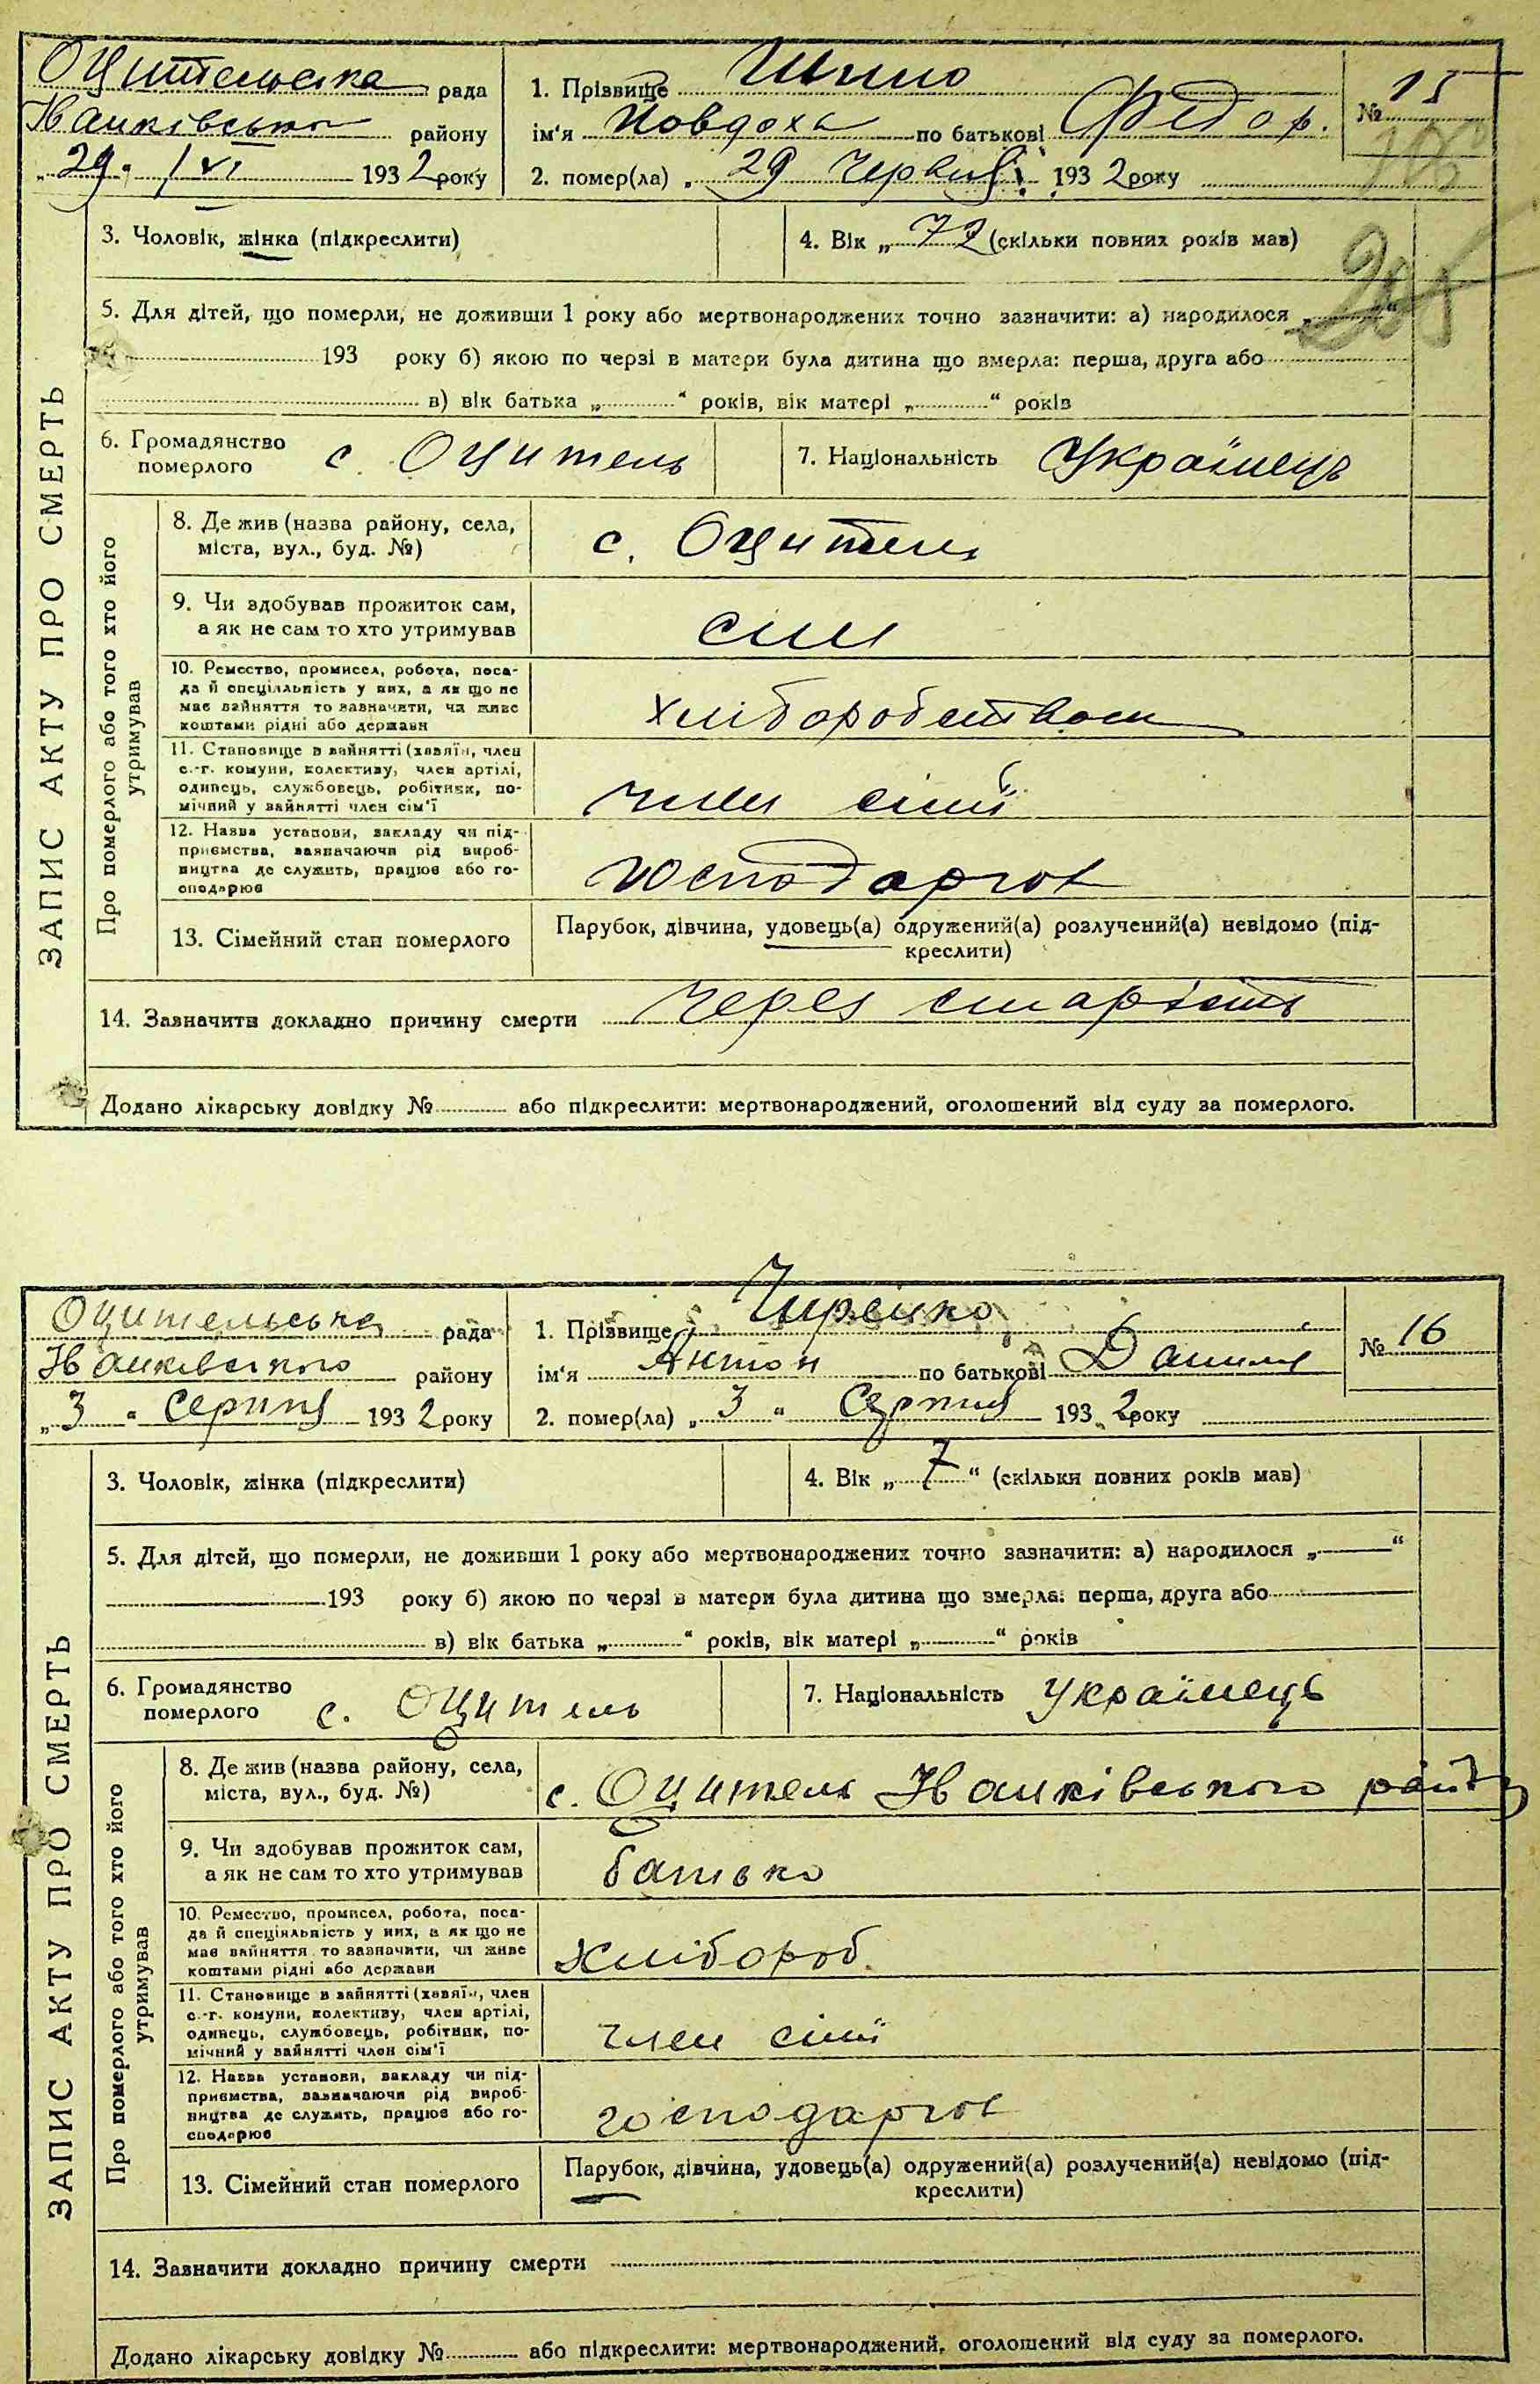 Оцительська рада
Іванківського району
„29“ VI 1932 року
1. Прізвище
ім'я Явдоха по батькові Федор.
2. помер(ла) „29 Червня 1932 року
№ 15
3. Чоловік, жінка (підкреслити)
4. Вік „72 (скільки повних років мав)
205
5. Для дітей, що померли, не доживши 1 року або мертвонароджених точно зазначити: а) народилося „ “
193 року б) якою по черзі в матери була дитина що вмерла: перша, друга або
в) вік батька „ “ років, вік матері „ “ років
6. Громадянство померлого с. Оцитель
7. Національність Українець
ЗАПИС АКТУ ПРО СМЕРТЬ
Про померлого або того хто його утримував
8. Де жив (назва району, села,
міста, вул., буд. №)
с. Оцитель
9. Чи здобував прожиток сам,
а як не сам то хто утримував
син
10. Ремество, промисел, робота, поса-
да й спеціяльність у них, а як що не
має зайняття то зазначити, чи живе
коштами рідні або держави
хліборобством
11. Становище в зайнятті (хазяїн, член
с.-г. комуни, колективу, член артілі,
одинець, службовець, робітник, по-
мічний у зайнятті член сім'ї
член сімї
12. Назва установи, закладу чи під-
приємства, зазначаючи рід вироб-
ництва де служить, працює або го-
сподарює
господарює
13. Сімейний стан померлого
Парубок, дівчина, удовець(а) одружений(а) розлучений(а) невідомо (під-
креслити)
14. Зазначити докладно причину смерти через старість
Додано лікарську довідку № або підкреслити: мертвонароджений, оголошений від суду за померлого.
Оцительська рада
Іванківського району
„3“ Серпня 1932 року
1. Прізвище
ім'я Антон по батькові Данилов
2. помер(ла) „3“ Серпня 1932 року
№ 16
3. Чоловік, жінка (підкреслити)
4. Вік „7“ (скільки повних років мав)
5. Для дітей, що померли, не доживши 1 року або мертвонароджених точно зазначити: а) народилося „ “
193 року б) якою по черзі в матери була дитина що вмерла: перша, друга або
в) вік батька „ “ років, вік матері „ “ років
6. Громадянство померлого с. Оцитель
7. Національність Українець
ЗАПИС АКТУ ПРО СМЕРТЬ
Про померлого або того хто його утримував
8. Де жив (назва району, села,
міста, вул., буд. №)
с. Оцитель Іванківського району
9. Чи здобував прожиток сам,
а як не сам то хто утримував
батько
10. Ремество, промисел, робота, поса-
да й спеціяльність у них, а як що не
має зайняття то зазначити, чи живе
коштами рідні або держави
хлібороб.
11. Становище в зайнятті (хазяїн, член
с.-г. комуни, колективу, член артілі,
одинець, службовець, робітник, по-
мічний у зайнятті член сім'ї
член сімї
12. Назва установи, закладу чи під-
приємства, зазначаючи рід вироб-
ництва де служить, працює або го-
сподарює
господарює
13. Сімейний стан померлого
Парубок, дівчина, удовець(а) одружений(а) розлучений(а) невідомо (під-
креслити)
14. Зазначити докладно причину смерти
Додано лікарську довідку № або підкреслити: мертвонароджений, оголошений від суду за померлого.